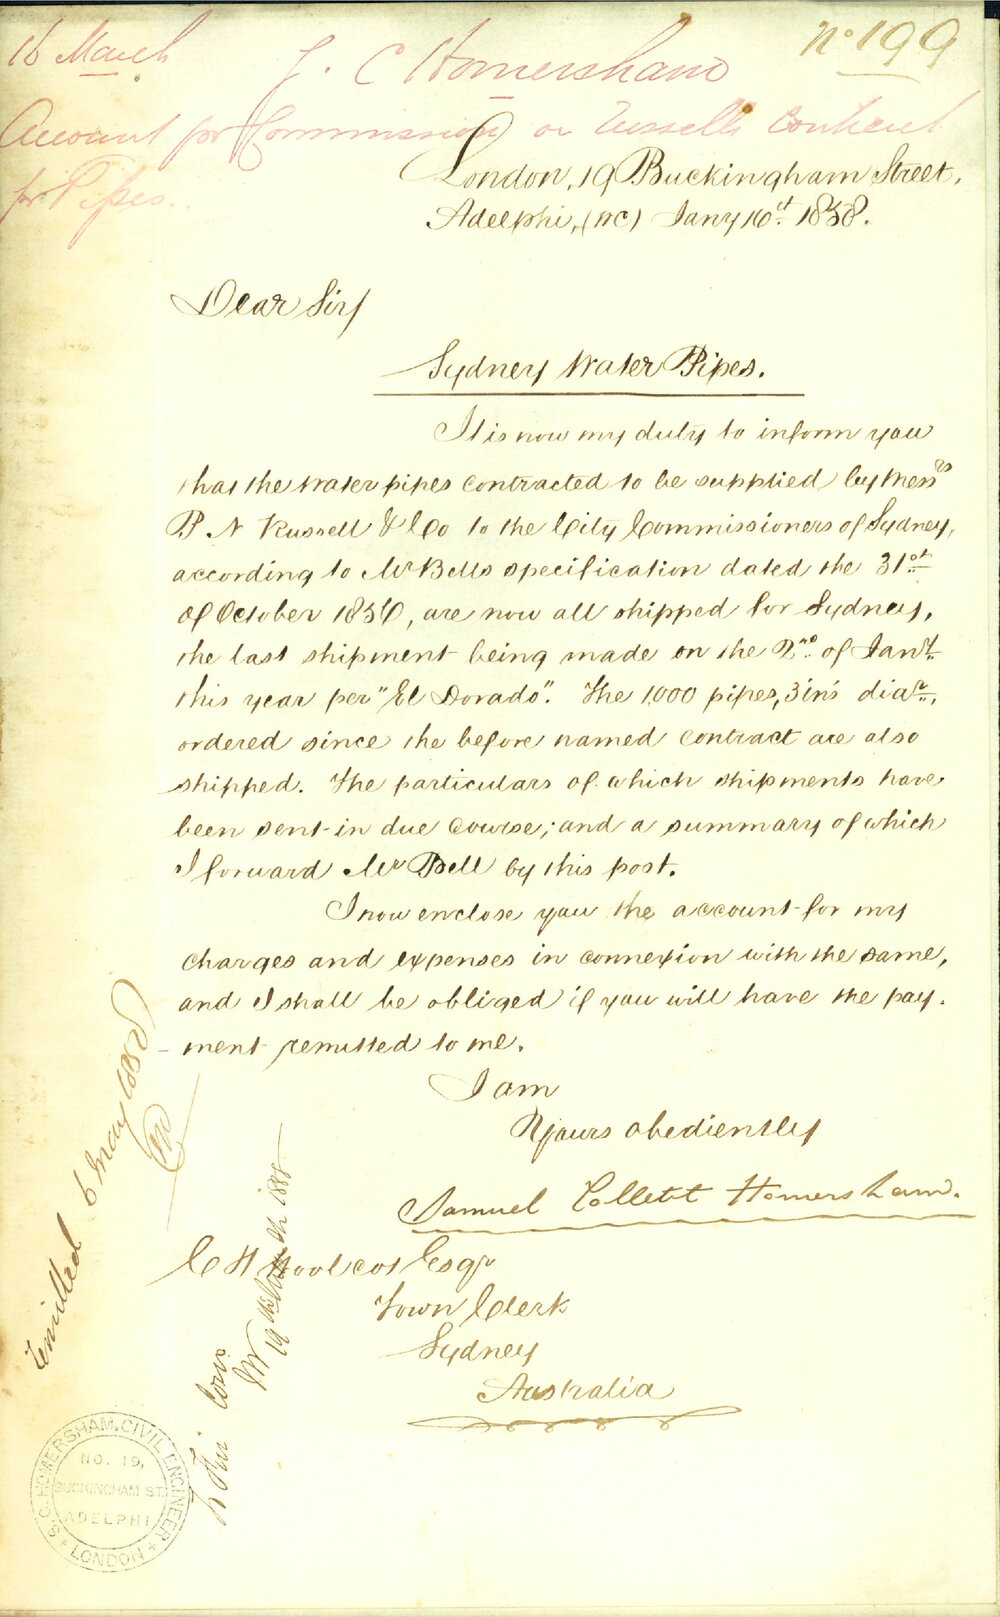 16 March
S. C Homersham
No 199
Account for Commission on Russells Contract
for Pipes.
London, 19 Buckingham Street,
Adelphi, (WC) Jany 16th 1858.
Dear Sir,
Sydney Water Pipes.
It is now my duty to inform you
that the water pipes contracted to be supplied by Messrs
P. N Russell & Co to the City Commissioners of Sydney,
according to Mr Bells specification dated the 31st
of October 1856, are now all shipped for Sydney,
the last shipment being made on the 2nd of Jany.
this year per "El Dorado". The 1,000 pipes, 3 in's diar.,
ordered since the before named contract are also
shipped. The particulars of which shipments have
been sent in due course; and a summary of which
I forward Mr Bell by this post.
I now enclose you the account for my
charges and expenses in connexion with the same,
and I shall be obliged if you will have the pay-
ment remitted to me.
I am
Yours obediently
Samuel Collett Homersham.
C H Woolcot Esqr
Town Clerk
Sydney
Australia
Remitted 6 May 1858
To Fin Com
19 March 1858
S. C. HOMERSHAM, CIVIL ENGINEER
NO. 19,
BUCKINGHAM ST.
ADELPHI
LONDON